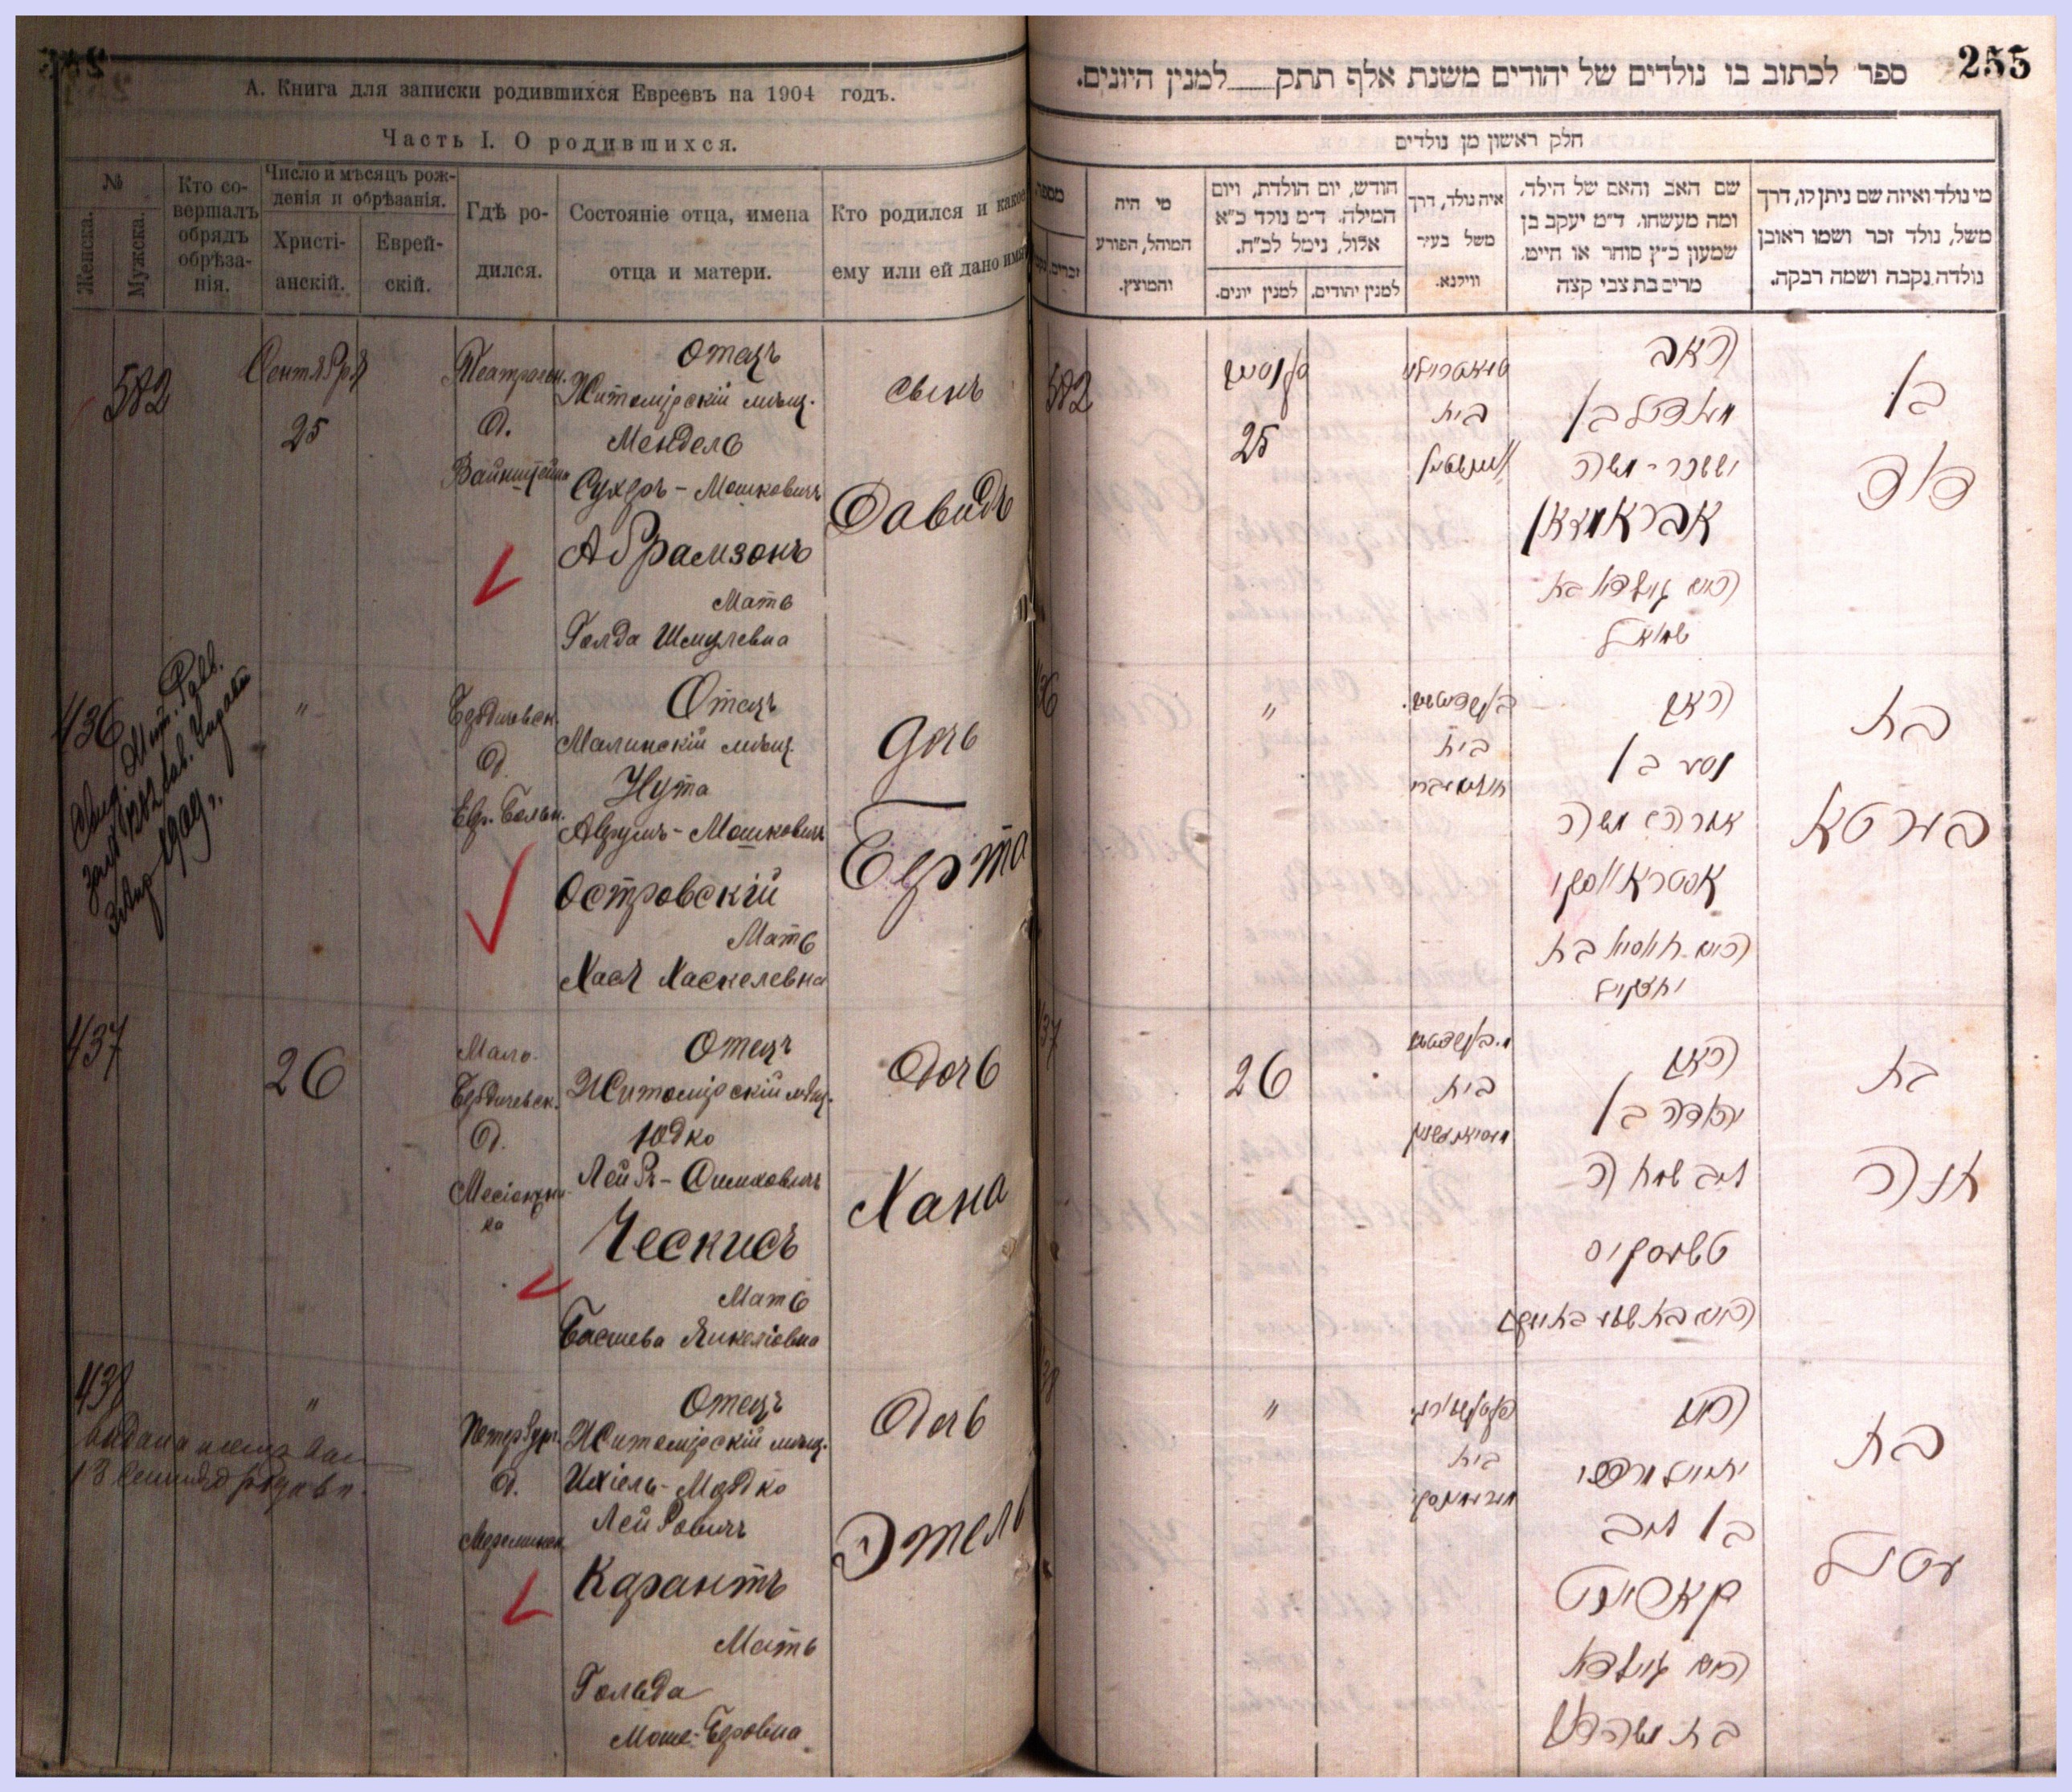 А. Книга для записки родившихся Евреевъ на 1904 годъ.
Часть I. О родившихся.
№
Женска.
Мужска.
Кто со-
вершалъ
обрядъ
обрѣза-
нія.
Число и мѣсяцъ рож-
денія и обрѣзанія.
Христі-
анскій.
Еврей-
скій.
Гдѣ ро-
дился.
Состояніе отца, имена
отца и матери.
Кто родился и какое
ему или ей дано имя
582
Сентября
25
Театральн.
д.
Вайнштейна
Отецъ
Житомірскій мѣщ.
Мендель
Сухеръ-Мошковичъ
Абрамзонъ
Мать
Голда Шмулевна
сынъ
Давидъ
436
"
Бердичевск.
д.
Евр. Больн.
Отецъ
Малинскій мѣщ.
Нута
Аврумъ-Мошковичъ
Островскій
Мать
Хася Хаскелевна
дочь
Берта
1909 г.
437
26
Мало-
Бердичевск.
д.
Отецъ
Житомірскій мѣщ.
Юдко
Лейбъ-Симховичъ
Ческисъ
Мать
Басшева Янкелевна
Дочь
Хана
438
"
Петербург.
д.
Отецъ
Житомірскій мѣщ.
Ихіель-Мордко
Лейбовичъ
Карантъ
Мать
Гольда
Мошк-Беровна
Дочь
Этель
255
ספר לכתוב בו נולדים של יהודים משנת אלף תתק למנין היונים.
חלק ראשון מן נולדים
מי נולד ואיזה שם ניתן לו, דרך
משל, נולד זכר ושמו ראובן
נולדה נקבה ושמה רבקה.
שם האב והאם של הילד,
ומה מעשהו. ד״מ יעקב בן
שמעון כ״ץ סוחר או חייט,
מרים בת צבי קצה
איה נולד, דרך
משל בעיר
ווילנא.
חודש, יום הולדת, ויום
המילה. ד״מ נולד כ״א
אלול, נימל לכ״ח.
למנין יהודים.
למנין יונים.
מי היה
המוהל, הפורע
והמוצץ.
מספר
זכרים.
בן
דוד
האב
מענדל בן
יששכר-משה
אבראמזאן
האם גולדא בת
שמואל
בית
25
582
בת
בערטא
האב
נטע בן
אברהם משה
אסטראווסקי
האם חאסיא בת
יחזקאל
בית
"
36
בת
חנה
האב
יהודה בן
ליב שמחה
טשעסקיס
האם בת שבע בת יעקב
בית
26
37
בת
עטיל
האב
יחיאל מרדכי
בן ליב
קאראנט
האם גולדא
בית
"
38